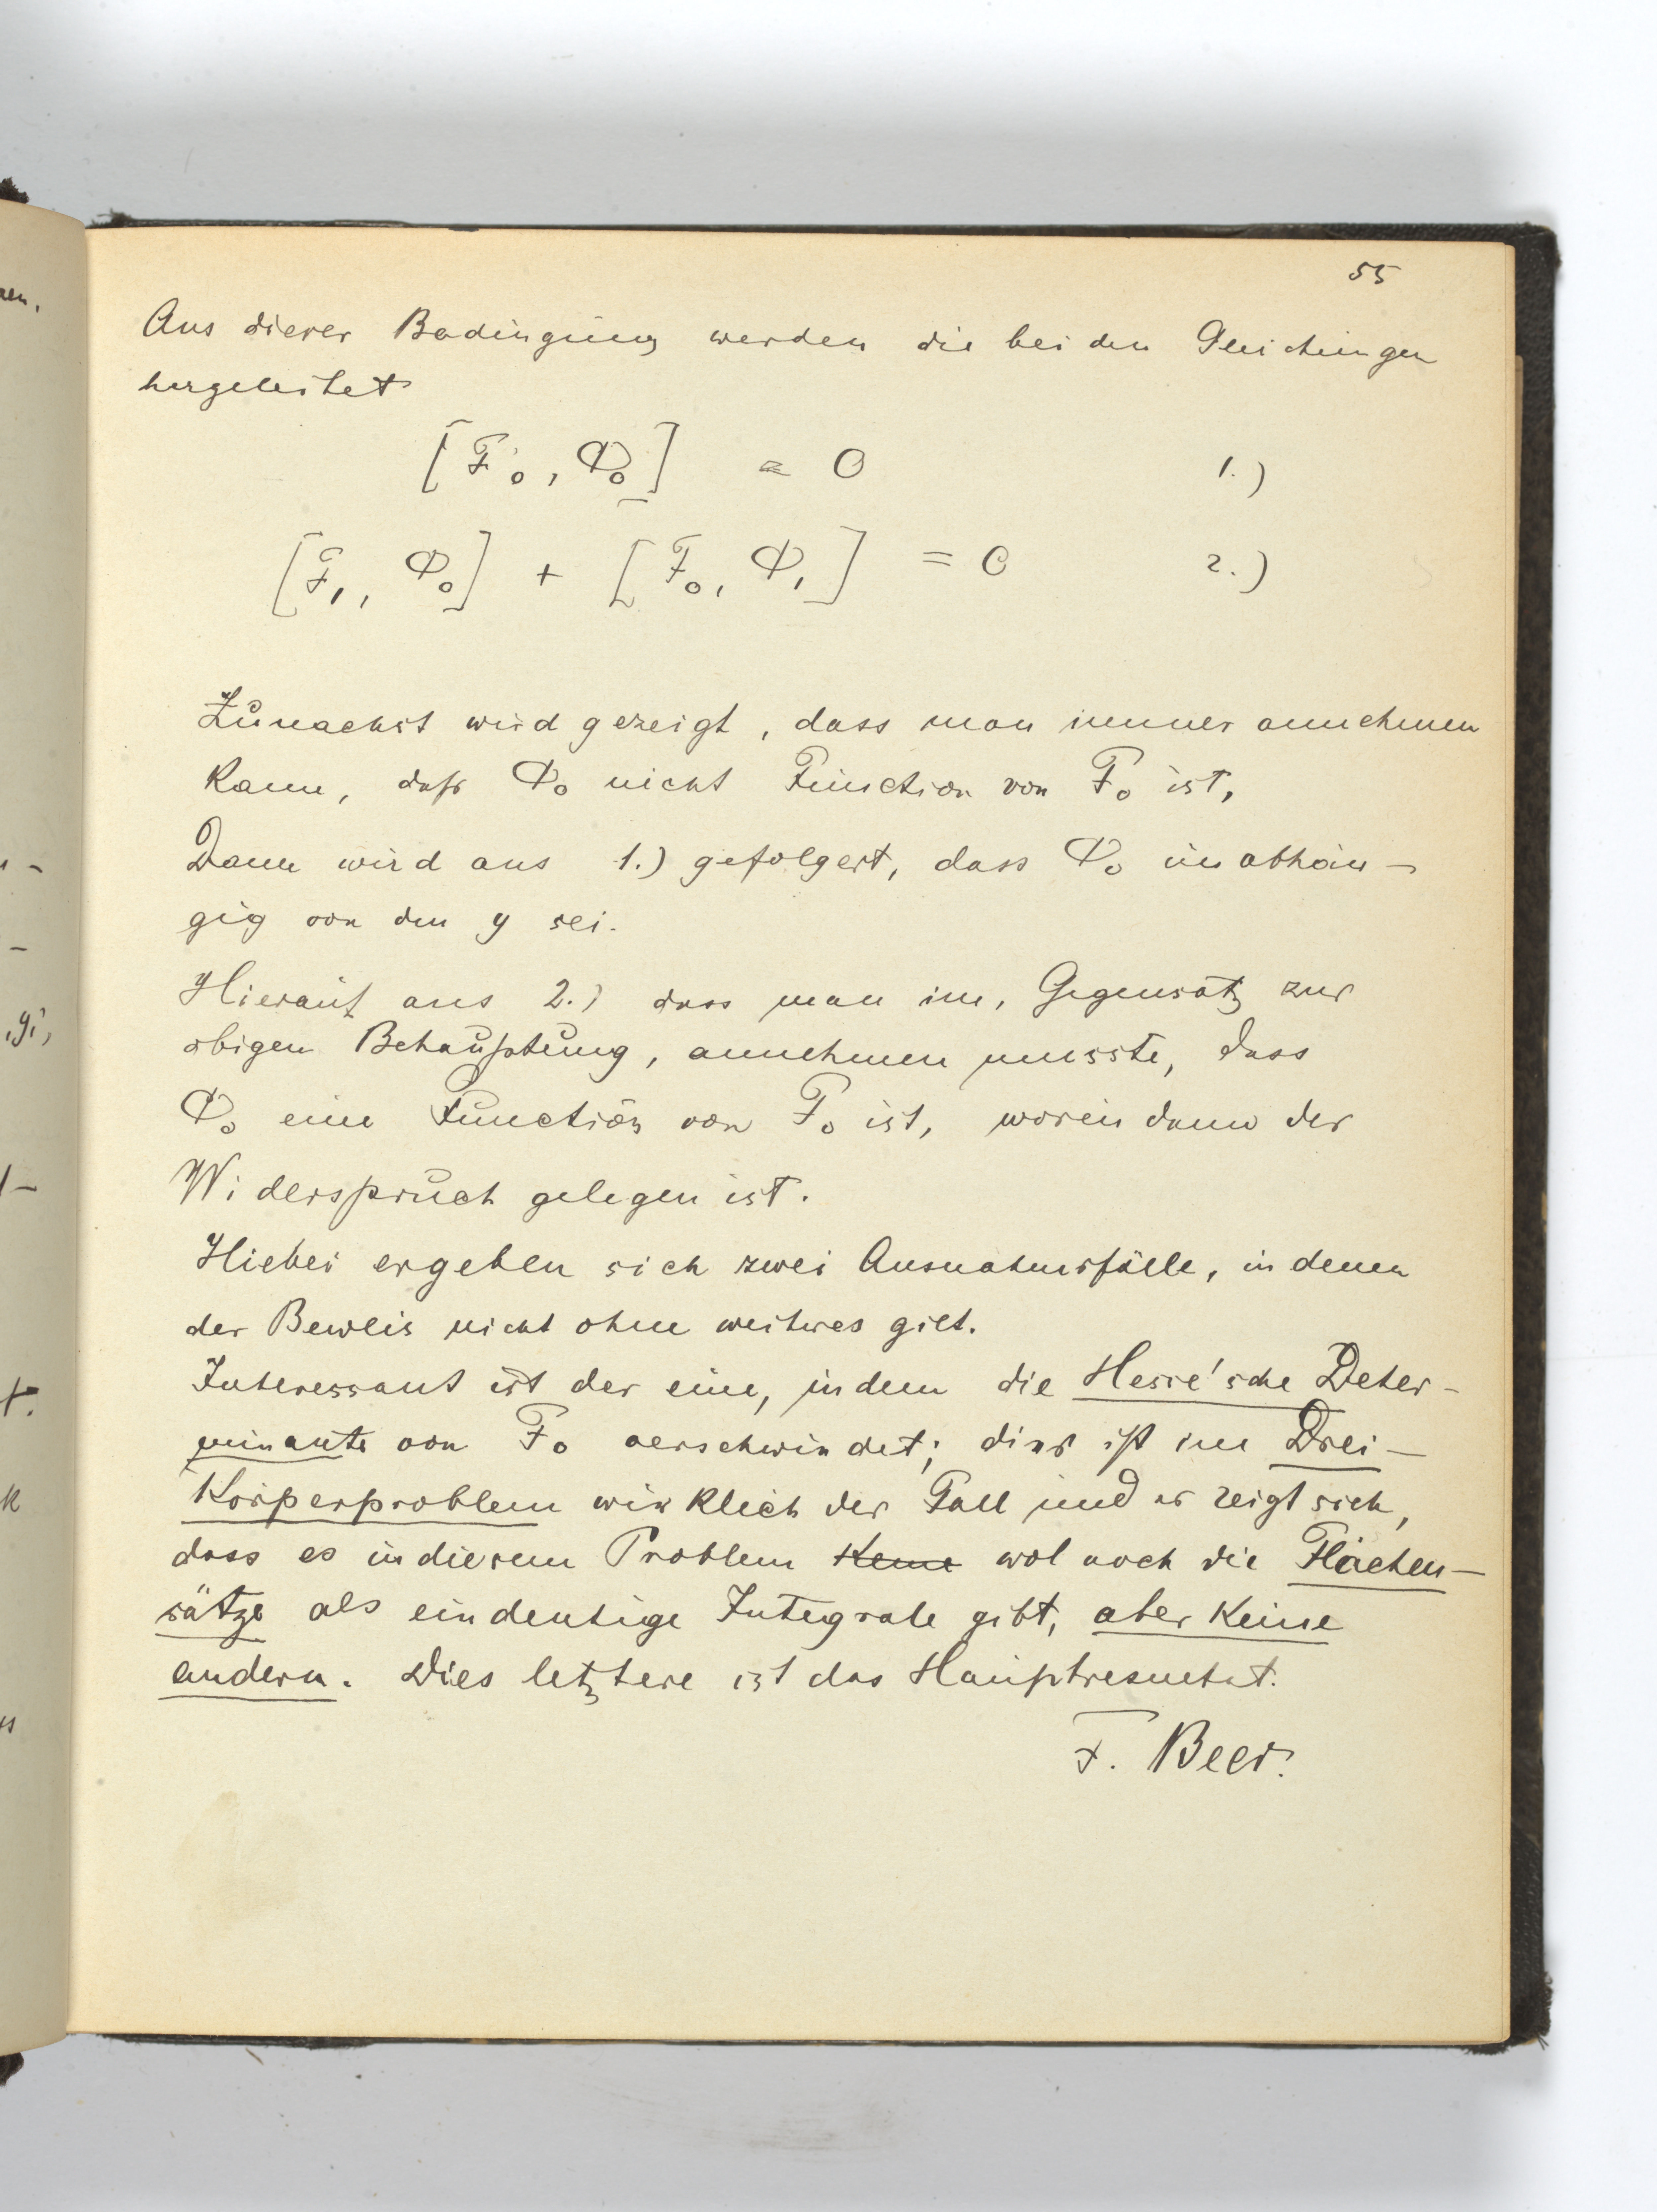 55
Aus dieser Bedingung werden die beiden Gleichungen
hergeleitet
[F₀, Φ₀] = 0 1.)
[F₁, Φ₀] + [F₀, Φ₁] = 0 2.)
Zunaechst wird gezeigt, dass man immer annehmen
kann, daß Φ₀ nicht Function von F₀ ist,
Dann wird aus 1.) gefolgert, dass Φ₀ unabhän-
gig von den y sei.
Hierauf aus 2.) dass man im, Gegensatz zur
obigen Behauptung, annehmen musste, dass
Φ₀ eine Function von F₀ ist, worin dann der
Widerspruch gelegen ist.
Hiebei ergeben sich zwei Ausnahmsfälle, in denen
der Beweis nicht ohne weiteres gilt.
Interessant ist der eine, indem die Hesse'sche Deter-
minante von F₀ verschwindet; dies ist im Drei-
Körperproblem wirklich der Fall und es zeigt sich,
dass es in diesem Problem keine wol noch die Flächen-
sätze als eindeutige Integrale gibt, aber keine
andern. Dies letztere ist das Hauptresultat.
F. Beer.
en.
-
-
gi,
-
t.
k